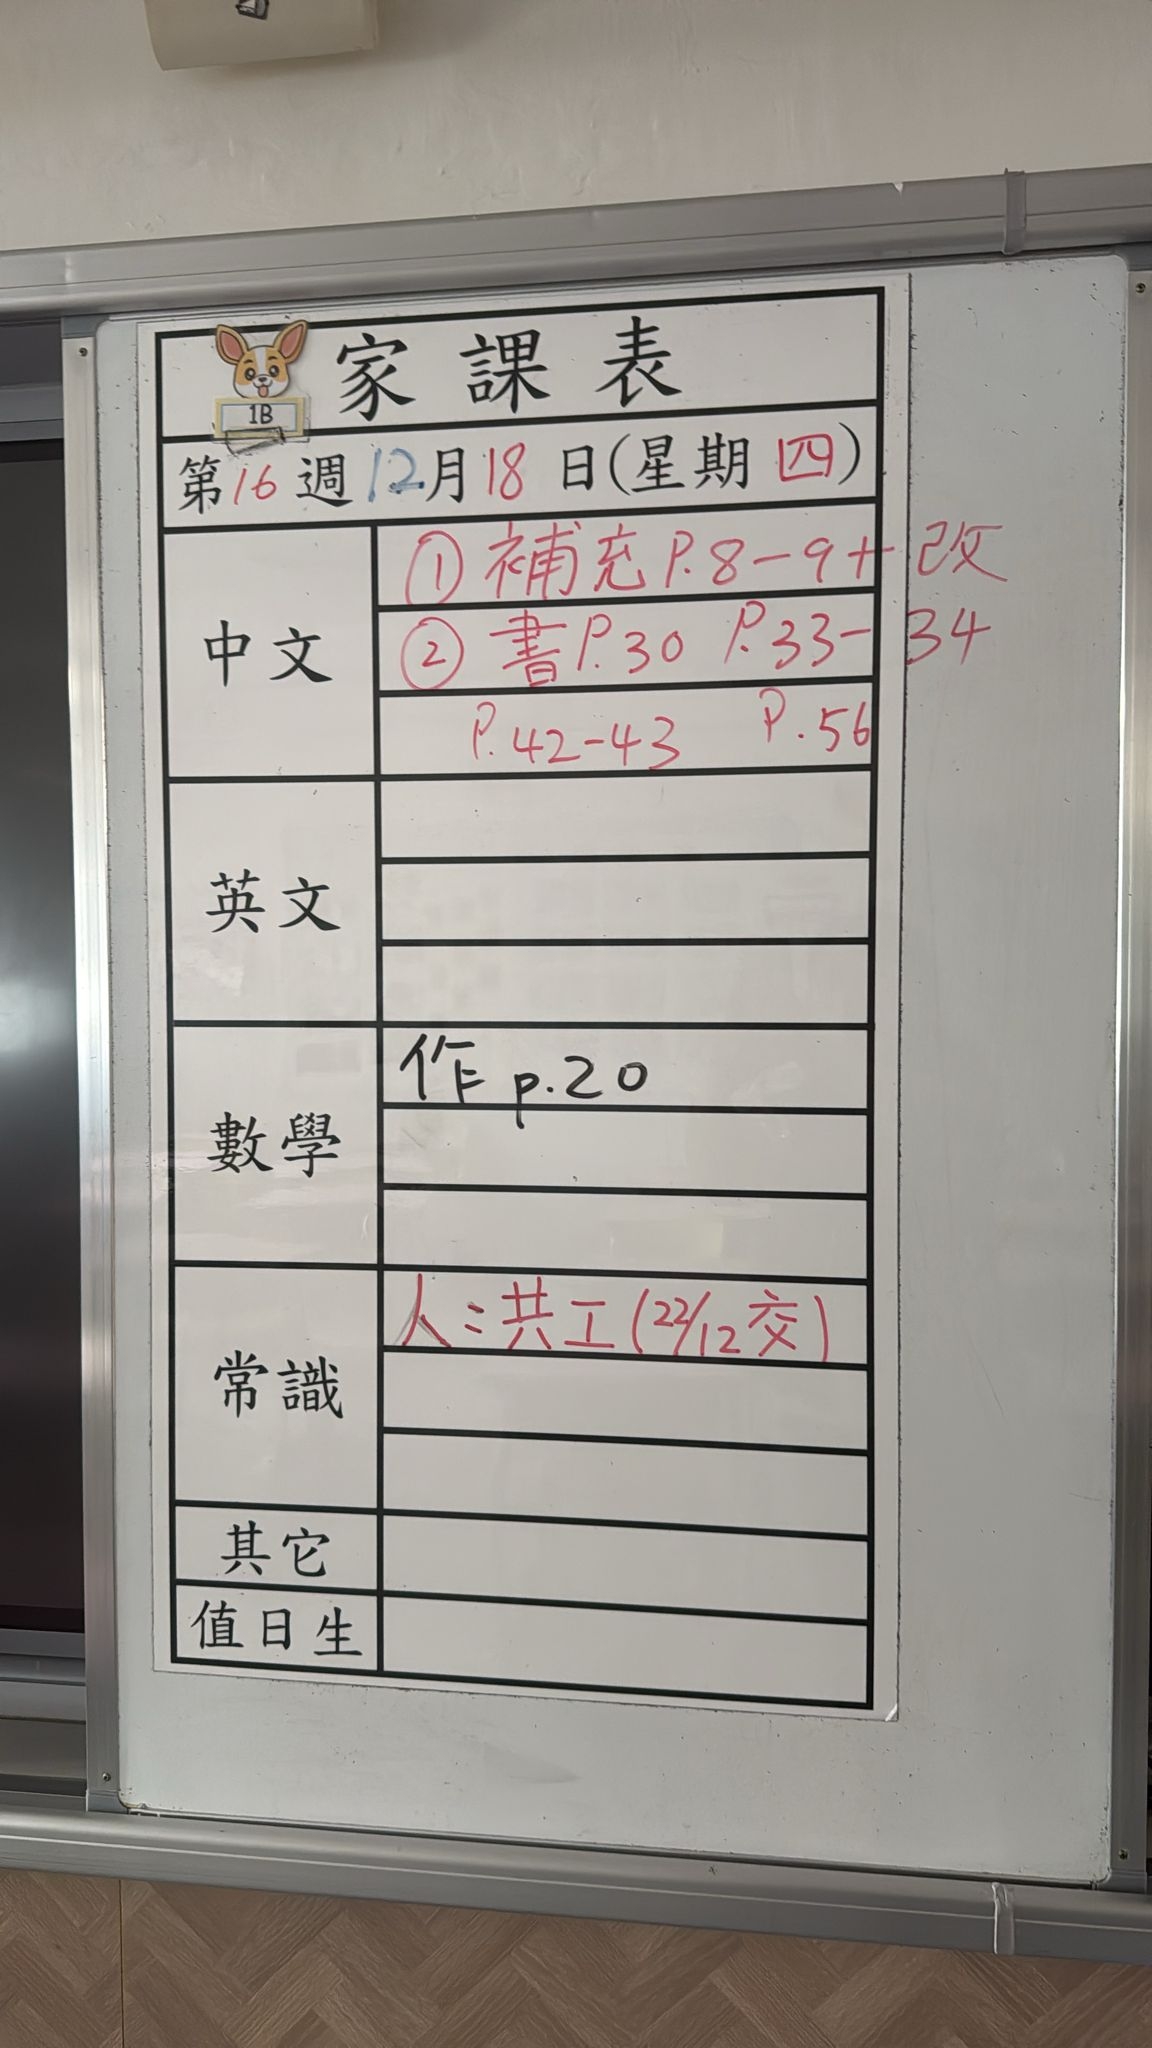 家課表
1B
第16週12月18日(星期四)
中文
① 補充 P.8-9+改
② 書 P.30 P.33-34
P.42-43 P.56
英文
數學
作 p.20
常識
人:共工(22/12交)
其它
值日生